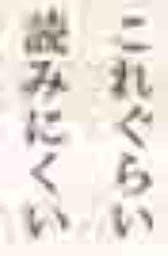 これぐらい
読みにくい